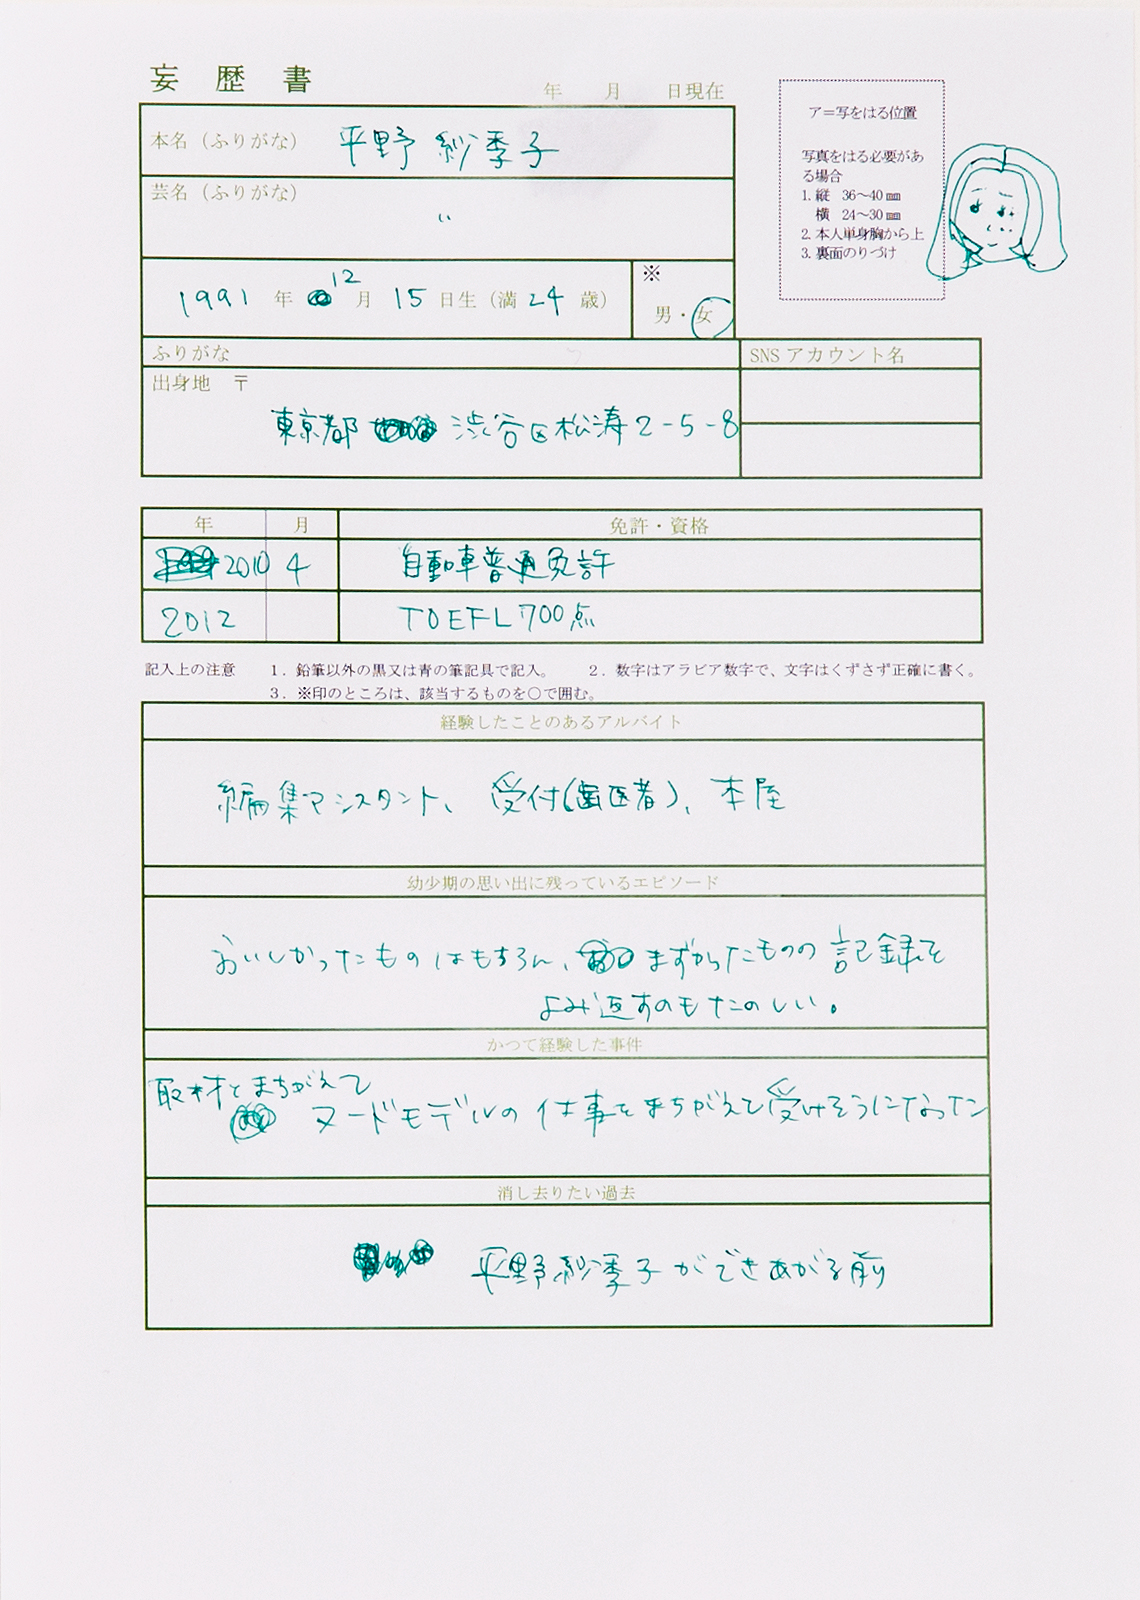 妄歴書
年 月 日現在
本名（ふりがな） 平野 紗季子
芸名（ふりがな） 〃
1991年 12月 15日生（満 24 歳）
※
男・女
ア＝写をはる位置
写真をはる必要があ
る場合
1. 縦 36〜40㎜
横 24〜30㎜
2. 本人単身胸から上
3. 裏面のりづけ
ふりがな
SNS アカウント名
出身地 〒
東京都 渋谷区松涛2-5-8
年 月 免許・資格
2010 4 自動車普通免許
2012 TOEFL 700点
記入上の注意 1．鉛筆以外の黒又は青の筆記具で記入。 2．数字はアラビア数字で、文字はくずさず正確に書く。
3．※印のところは、該当するものを○で囲む。
経験したことのあるアルバイト
編集アシスタント、受付(歯医者)、本屋
幼少期の思い出に残っているエピソード
おいしかったものはもちろん、まずかったものの記録を
よみ返すのもたのしい。
かつて経験した事件
取材とまちがえて
ヌードモデルの仕事をまちがえて受けそうになった
消し去りたい過去
平野紗季子ができあがる前